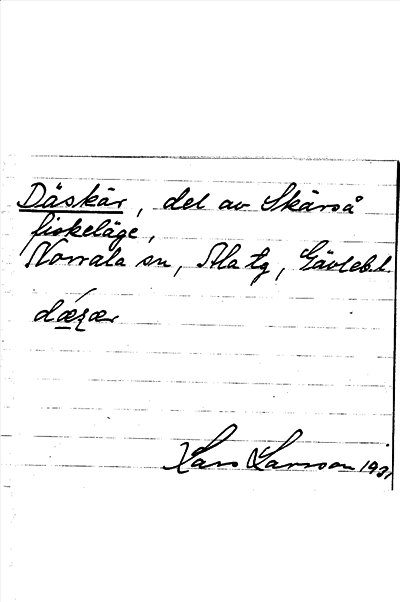 Däskär, del av Skärså
fiskeläge,
Norrala sn, Ala tg, Gävleb.l.
Lars Larsson 1931